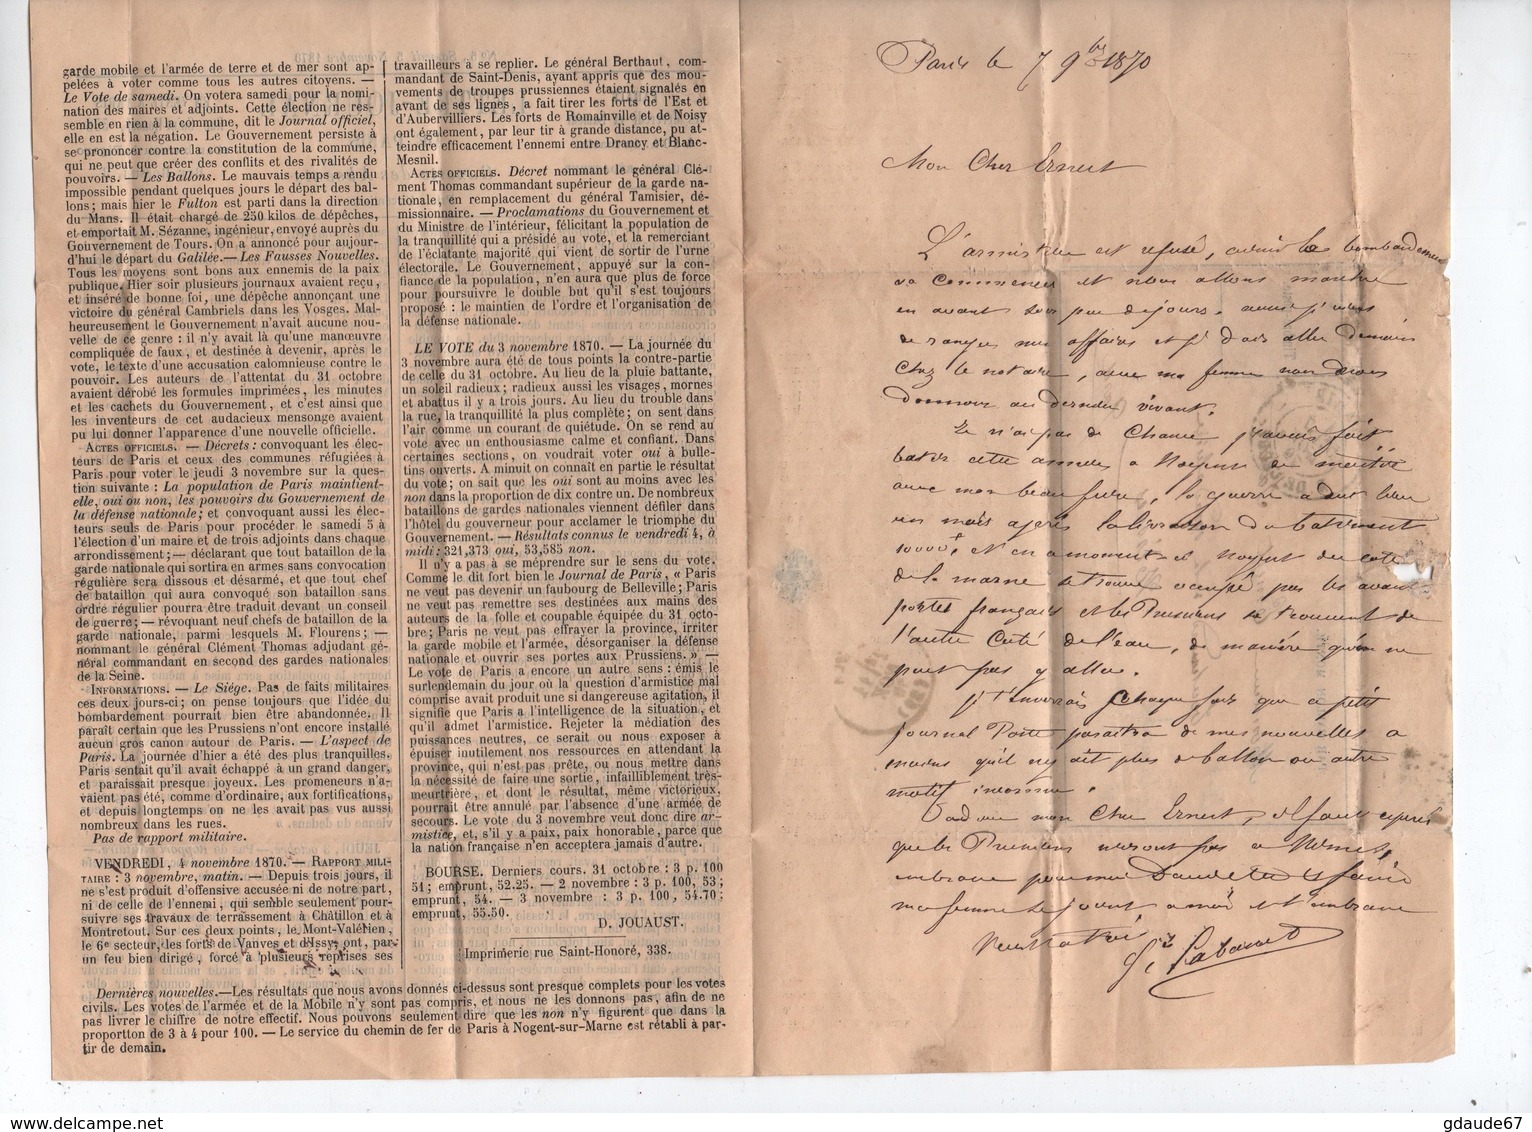 garde mobile et l'armée de terre et de mer sont ap-
pelées à voter comme tous les autres citoyens. —
Le Vote de samedi. On votera samedi pour la nomi-
nation des maires et adjoints. Cette élection ne res-
semble en rien à la commune, dit le Journal officiel,
elle en est la négation. Le Gouvernement persiste à
se prononcer contre la constitution de la commune,
qui ne peut que créer des conflits et des rivalités de
pouvoirs. — Les Ballons. Le mauvais temps a rendu
impossible pendant quelques jours le départ des bal-
lons; mais hier le Fulton est parti dans la direction
du Mans. Il était chargé de 250 kilos de dépêches,
et emportait M. Sézanne, ingénieur, envoyé auprès du
Gouvernement de Tours. On a annoncé pour aujour-
d'hui le départ du Galilée. — Les Fausses Nouvelles.
Tous les moyens sont bons aux ennemis de la paix
publique. Hier soir plusieurs journaux avaient reçu,
et inséré de bonne foi, une dépêche annonçant une
victoire du général Cambriels dans les Vosges. Mal-
heureusement le Gouvernement n'avait aucune nou-
velle de ce genre : il n'y avait là qu'une manœuvre
compliquée de faux, et destinée à devenir, après le
vote, le texte d'une accusation calomnieuse contre le
pouvoir. Les auteurs de l'attentat du 31 octobre
avaient dérobé les formules imprimées, les minutes
et les cachets du Gouvernement, et c'est ainsi que
les inventeurs de cet audacieux mensonge avaient
pu lui donner l'apparence d'une nouvelle officielle.
ACTES OFFICIELS. — Décrets : convoquant les élec-
teurs de Paris et ceux des communes réfugiées à
Paris pour voter le jeudi 3 novembre sur la ques-
tion suivante : La population de Paris maintient-
elle, oui ou non, les pouvoirs du Gouvernement de
la défense nationale; et convoquant aussi les élec-
teurs seuls de Paris pour procéder le samedi 5 à
l'élection d'un maire et de trois adjoints dans chaque
arrondissement; — déclarant que tout bataillon de la
garde nationale qui sortira en armes sans convocation
régulière sera dissous et désarmé, et que tout chef
de bataillon qui aura convoqué son bataillon sans
ordre régulier pourra être traduit devant un conseil
de guerre; — révoquant neuf chefs de bataillon de la
garde nationale, parmi lesquels M. Flourens; —
nommant le général Clément Thomas adjudant gé-
néral commandant en second des gardes nationales
de la Seine.
INFORMATIONS. — Le Siége. Pas de faits militaires
ces deux jours-ci; on pense toujours que l'idée du
bombardement pourrait bien être abandonnée. Il
paraît certain que les Prussiens n'ont encore installé
aucun gros canon autour de Paris. — L'aspect de
Paris. La journée d'hier a été des plus tranquilles.
Paris sentait qu'il avait échappé à un grand danger,
et paraissait presque joyeux. Les promeneurs n'a-
vaient pas été, comme d'ordinaire, aux fortifications,
et depuis longtemps on ne les avait pas vus aussi
nombreux dans les rues.
Pas de rapport militaire.
VENDREDI, 4 novembre 1870. — RAPPORT MILI-
TAIRE : 3 novembre, matin. — Depuis trois jours, il
ne s'est produit d'offensive accusée ni de notre part,
ni de celle de l'ennemi, qui semble seulement pour-
suivre ses travaux de terrassement à Châtillon et à
Montretout. Sur ces deux points, le Mont-Valérien,
le 6e secteur, les forts de Vanves et d'Issy ont, par
un feu bien dirigé, forcé à plusieurs reprises ses
travailleurs à se replier. Le général Berthaut, com-
mandant de Saint-Denis, ayant appris que des mou-
vements de troupes prussiennes étaient signalés en
avant de ses lignes, a fait tirer les forts de l'Est et
d'Aubervilliers. Les forts de Romainville et de Noisy
ont également, par leur tir à grande distance, pu at-
teindre efficacement l'ennemi entre Drancy et Blanc-
Mesnil.
ACTES OFFICIELS. Décret nommant le général Clé-
ment Thomas commandant supérieur de la garde na-
tionale, en remplacement du général Tamisier, dé-
missionnaire. — Proclamations du Gouvernement et
du Ministre de l'intérieur, félicitant la population de
la tranquillité qui a présidé au vote, et la remerciant
de l'éclatante majorité qui vient de sortir de l'urne
électorale. Le Gouvernement, appuyé sur la con-
fiance de la population, n'en aura que plus de force
pour poursuivre le double but qu'il s'est toujours
proposé : le maintien de l'ordre et l'organisation de
la défense nationale.
LE VOTE du 3 novembre 1870. — La journée du
3 novembre aura été de tous points la contre-partie
de celle du 31 octobre. Au lieu de la pluie battante,
un soleil radieux; radieux aussi les visages, mornes
et abattus il y a trois jours. Au lieu du trouble dans
la rue, la tranquillité la plus complète; on sent dans
l'air comme un courant de quiétude. On se rend au
vote avec un enthousiasme calme et confiant. Dans
certaines sections, on voudrait voter oui à bulle-
tins ouverts. A minuit on connaît en partie le résultat
du vote; on sait que les oui sont au moins avec les
non dans la proportion de dix contre un. De nombreux
bataillons de gardes nationales viennent défiler dans
l'hôtel du gouverneur pour acclamer le triomphe du
Gouvernement. — Résultats connus le vendredi 4, à
midi : 321,373 oui, 53,585 non.
Il n'y a pas à se méprendre sur le sens du vote.
Comme le dit fort bien le Journal de Paris, « Paris
ne veut pas devenir un faubourg de Belleville; Paris
ne veut pas remettre ses destinées aux mains des
auteurs de la folle et coupable équipée du 31 octo-
bre; Paris ne veut pas effrayer la province, irriter
la garde mobile et l'armée, désorganiser la défense
nationale et ouvrir ses portes aux Prussiens. » —
Le vote de Paris a encore un autre sens : émis le
surlendemain du jour où la question d'armistice mal
comprise avait produit une si dangereuse agitation, il
signifie que Paris a l'intelligence de la situation, et
qu'il admet l'armistice. Rejeter la médiation des
puissances neutres, ce serait ou nous exposer à
épuiser inutilement nos ressources en attendant la
province, qui n'est pas prête, ou nous mettre dans
la nécessité de faire une sortie, infailliblement très-
meurtrière, et dont le résultat, même victorieux,
pourrait être annulé par l'absence d'une armée de
secours. Le vote du 3 novembre veut donc dire ar-
mistice, et, s'il y a paix, paix honorable, parce que
la nation française n'en acceptera jamais d'autre.
BOURSE. Derniers cours. 31 octobre : 3 p. 100
51; emprunt, 52.25. — 2 novembre : 3 p. 100, 53;
emprunt, 54. — 3 novembre : 3 p. 100, 54.70;
emprunt, 55.50.
D. JOUAUST.
Imprimerie rue Saint-Honoré, 338.
Dernières nouvelles.—Les résultats que nous avons donnés ci-dessus sont presque complets pour les votes
civils. Les votes de l'armée et de la Mobile n'y sont pas compris, et nous ne les donnons pas, afin de ne
pas livrer le chiffre de notre effectif. Nous pouvons seulement dire que les non n'y figurent que dans la
proportion de 3 à 4 pour 100. — Le service du chemin de fer de Paris à Nogent-sur-Marne est rétabli à par-
tir de demain.
Paris le 7 9bre 1870
Mon Cher Ernest
L'armistice est refusé, le bombardement
va commencer et nous allons marcher
en avant sous peu de jours. aussi j'viens
de ranger mes affaires et j'dois aller demain
chez le notaire, avec ma femme nous
donner au dernier vivant.
Je n'ai pas de chance j'avais fait
batir cette année a de moitié
avec mon beau frere, la guerre a eut lieu
un mois après la livraison du batiment
10000f et en a moment et Noyent du coté
de la marne se trouve occupé par les avant
postes français et les Prussiens se trouvent de
l'autre coté de l'eau, de manière qu'on ne
peut pas y aller.
J't'enverrais chaque fois que ce petit
journal Poste paraitra de mes nouvelles a
moins qu'il n'y ait plus de ballon ou autre
motif inconnu.
mon Cher Ernest, il faut esperer
que les Prussiens n'iront pas a Nimes,
embrasse pour moi
ma femme se joint a moi et t'embrasse
gdaude67